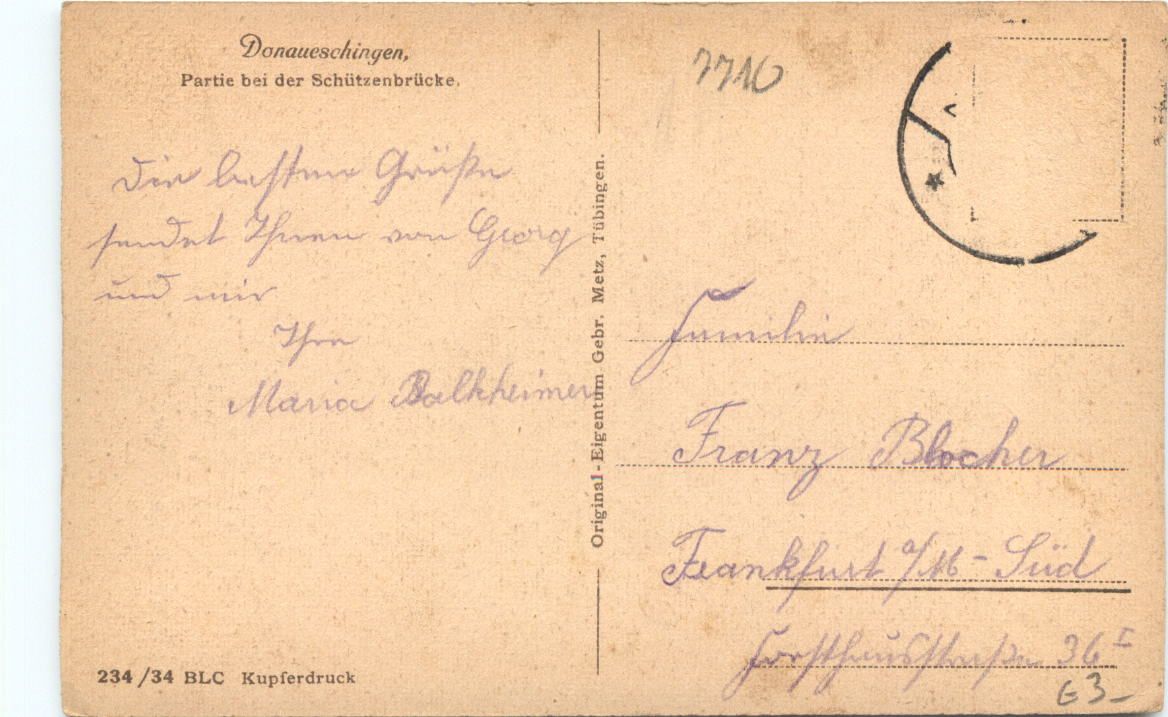 Donaueschingen,
Partie bei der Schützenbrücke.
7710
Die besten Grüße
sendet Ihnen von Georg
und mir
Ihre
Maria
Original-Eigentum Gebr. Metz, Tübingen.
Familie
Franz Blocher
Frankfurt a/M-Süd
Forsthausstraße 36 I
234/34 BLC Kupferdruck
G3-